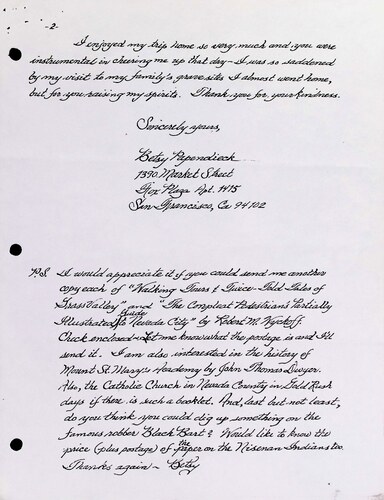 -2-
I enjoyed my trip home so very much and you were
instrumental in cheering me up that day - I was so saddened
by my visit to my family's gravesites I almost went home,
but for you raising my spirits. Thank you for your kindness.
Sincerely yours,
Betsy Papendieck
1390 Market Street
Fox Plaza Apt. 1415
San Francisco, Ca 94102
P.S. I would appreciate it if you could send me another
copy each of "Walking Tours & Twice-Told Tales of
Grass Valley" and "The Compleat Pedestrian's Partially
Illustrated Guide to Nevada City" by Robert M. Wyckoff.
Check enclosed - Let me know what the postage is and I'll
send it. I am also interested in the history of
Mount St. Mary's Academy by John Thomas Dwyer.
Also, the Catholic Church in Nevada County in Gold Rush
days if there is such a booklet. And, last but not least,
do you think you could dig up something on the
famous robber Black Bart? Would like to know the
price (plus postage) of the paper on the Nisenan Indians too.
Thanks again - Betsy